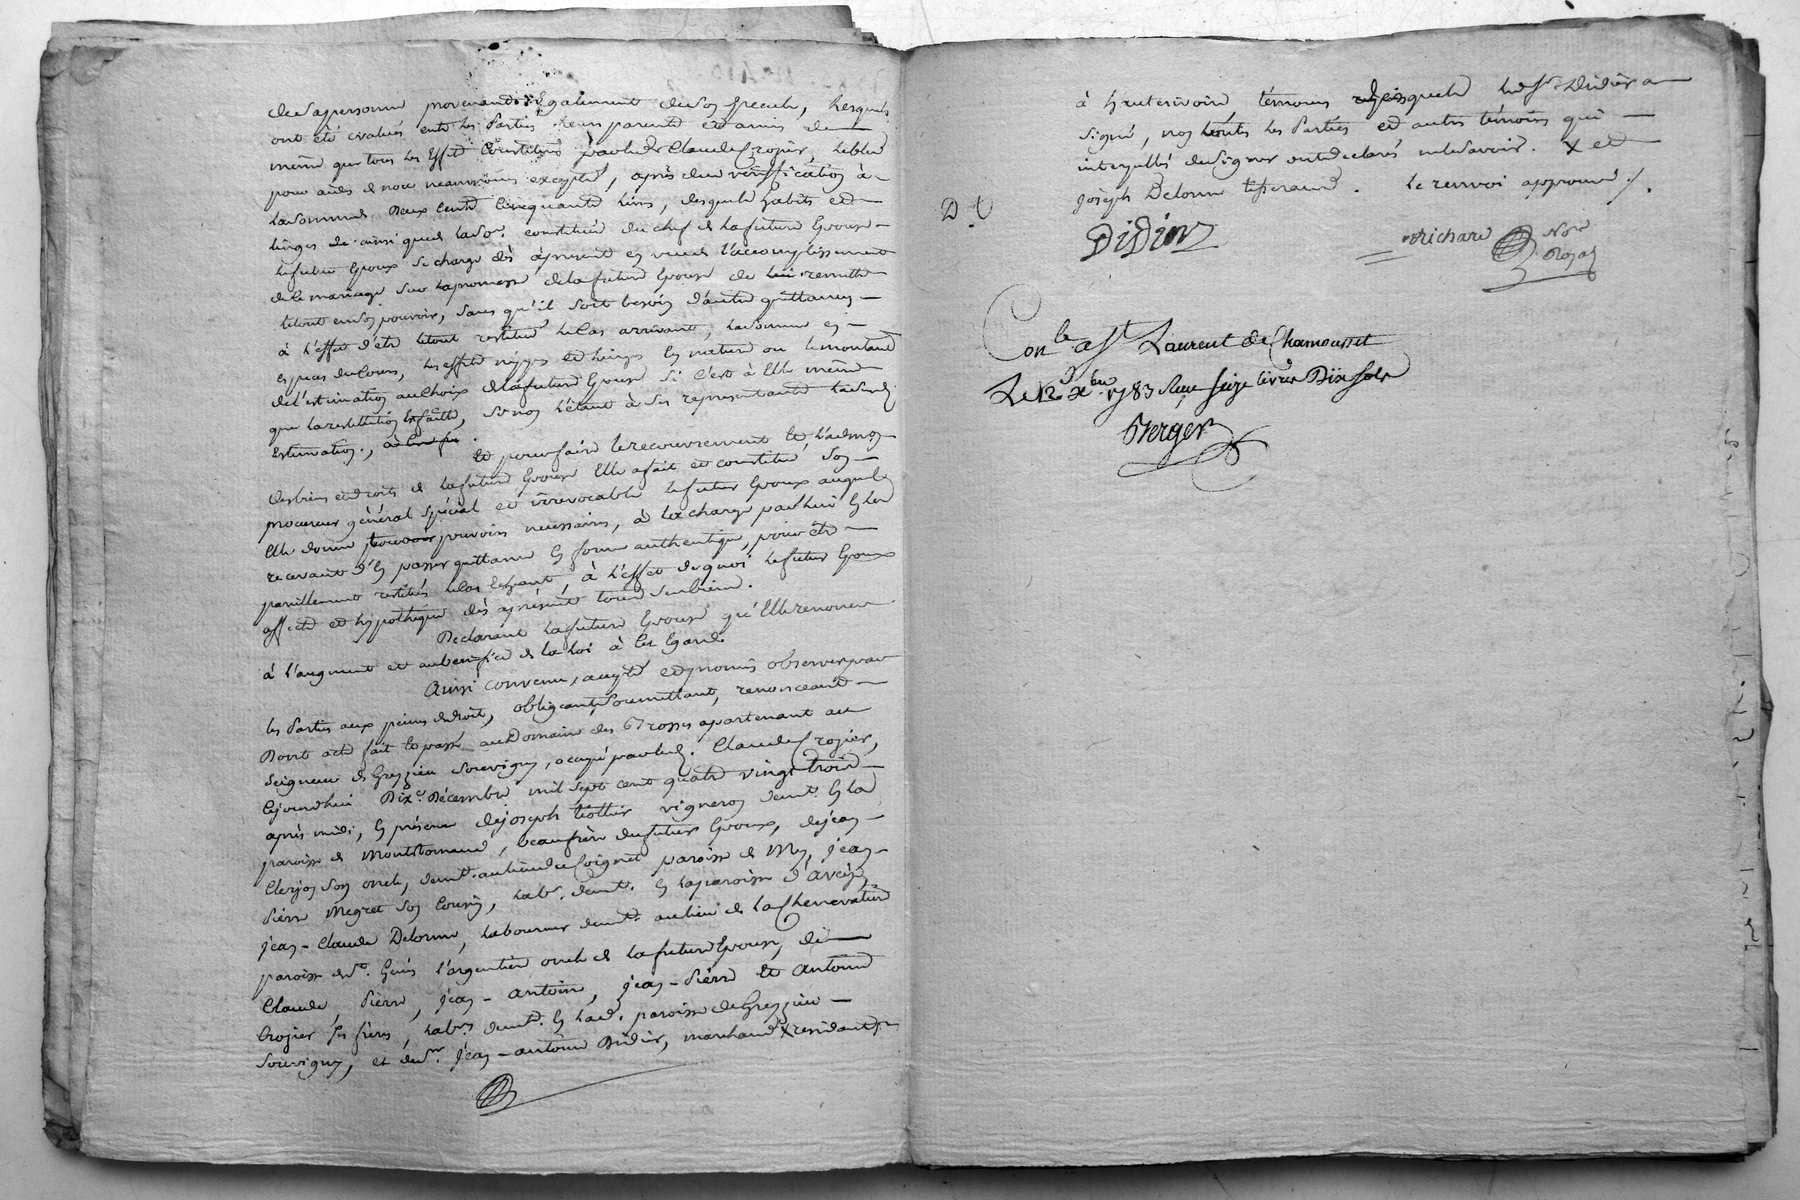 de sa personne provenant également de son pecule, lesquels
ont été évalués entre les Parties leurs parents et amis de
même que tous les effets constitués par led. Claude Crozier,
pour aides et noce neanmoins excepté, après due vérification à
la somme de Deux Cents Cinquante livres, desquels habits et
linges de ainsi que de lad. constitué du chef de la future Epouse
le futur Epoux se charge dès àprésent en vue de l'accomplissement
de le mariage sur la promesse de la future Epouse de lui remettre
le tout en son pouvoir, sans qu'il soit besoin d'autre quittance,
à l'effet d'etre le tout restitué le Cas arrivant, la somme en
especes de Cours, les effets nippes et linges en nature ou le montant
de l'estimation au Choix de la future Epouse si c'est à Elle même
que la restitution est faite, sinon l'étant à ses représentants
Estimation.,
Et pour faire le recouvrement et
des biens et droits de la future Epouse Elle a fait et constitué son
procureur général spécial et irrévocable le futur Epoux auquel
Elle donne pouvoirs nécessaires, à la charge par lui en les
recevant d'en passer quittance en forme authentique, pour être
pareillement restitués le Cas Echéant, à l'effet de quoi le futur Epoux
affecte et hypothèque dès àprésent tous ses biens.
Declarant la future Epouse qu'Elle renonce
à l'augment et au benefice de la Loi à cet Egard.
Ainsi convenu, accepté et promis observer par
les Parties aux peines de droit, obligeant, soumettant, renonceant
Dont acte fait et passé au Domaine des Brosses apartenant au
Seigneur de Grezieu Souvigny, occupé par led. Claude Crozier,
Cejourdhui Dix Décembre mil sept cent quatre vingt trois
après midi, En présence de joseph tiollier vigneron demt. En la
paroisse de Montromand, beaufrère du futur Epoux, de jean
Clerjon son oncle, demt. au lieu de paroisse de Mey, jean
Pierre Megret son Cousin, labr. demt. En la paroisse d'aveize,
jean-Claude Delorme, laboureur demt. au lieu de la Chenevatiere
paroisse de St. Genis l'argentière oncle de la future Epouse, de
Claude, Pierre, jean-antoine, jean-Pierre et antoine
Crozier ses frères, labrs. demt. En lad. paroisse de Grezieu
Souvigny, et de Sr. jean-antoine Didier, marchand X residant
à hauterivoire, témoins lesquels led. Sr. Didier a
signé, non les Parties et autres témoins qui
interpellés de signer ont declaré ne le savoir. X et
joseph Delorme tisserand. le renvoi approuvé /.
D. V
Didier
Richard Nore
Royal
Conlé a St Laurent de Chamousset
Le 12 Xbre 1783 Reçu seize livres Dix sols
Berger